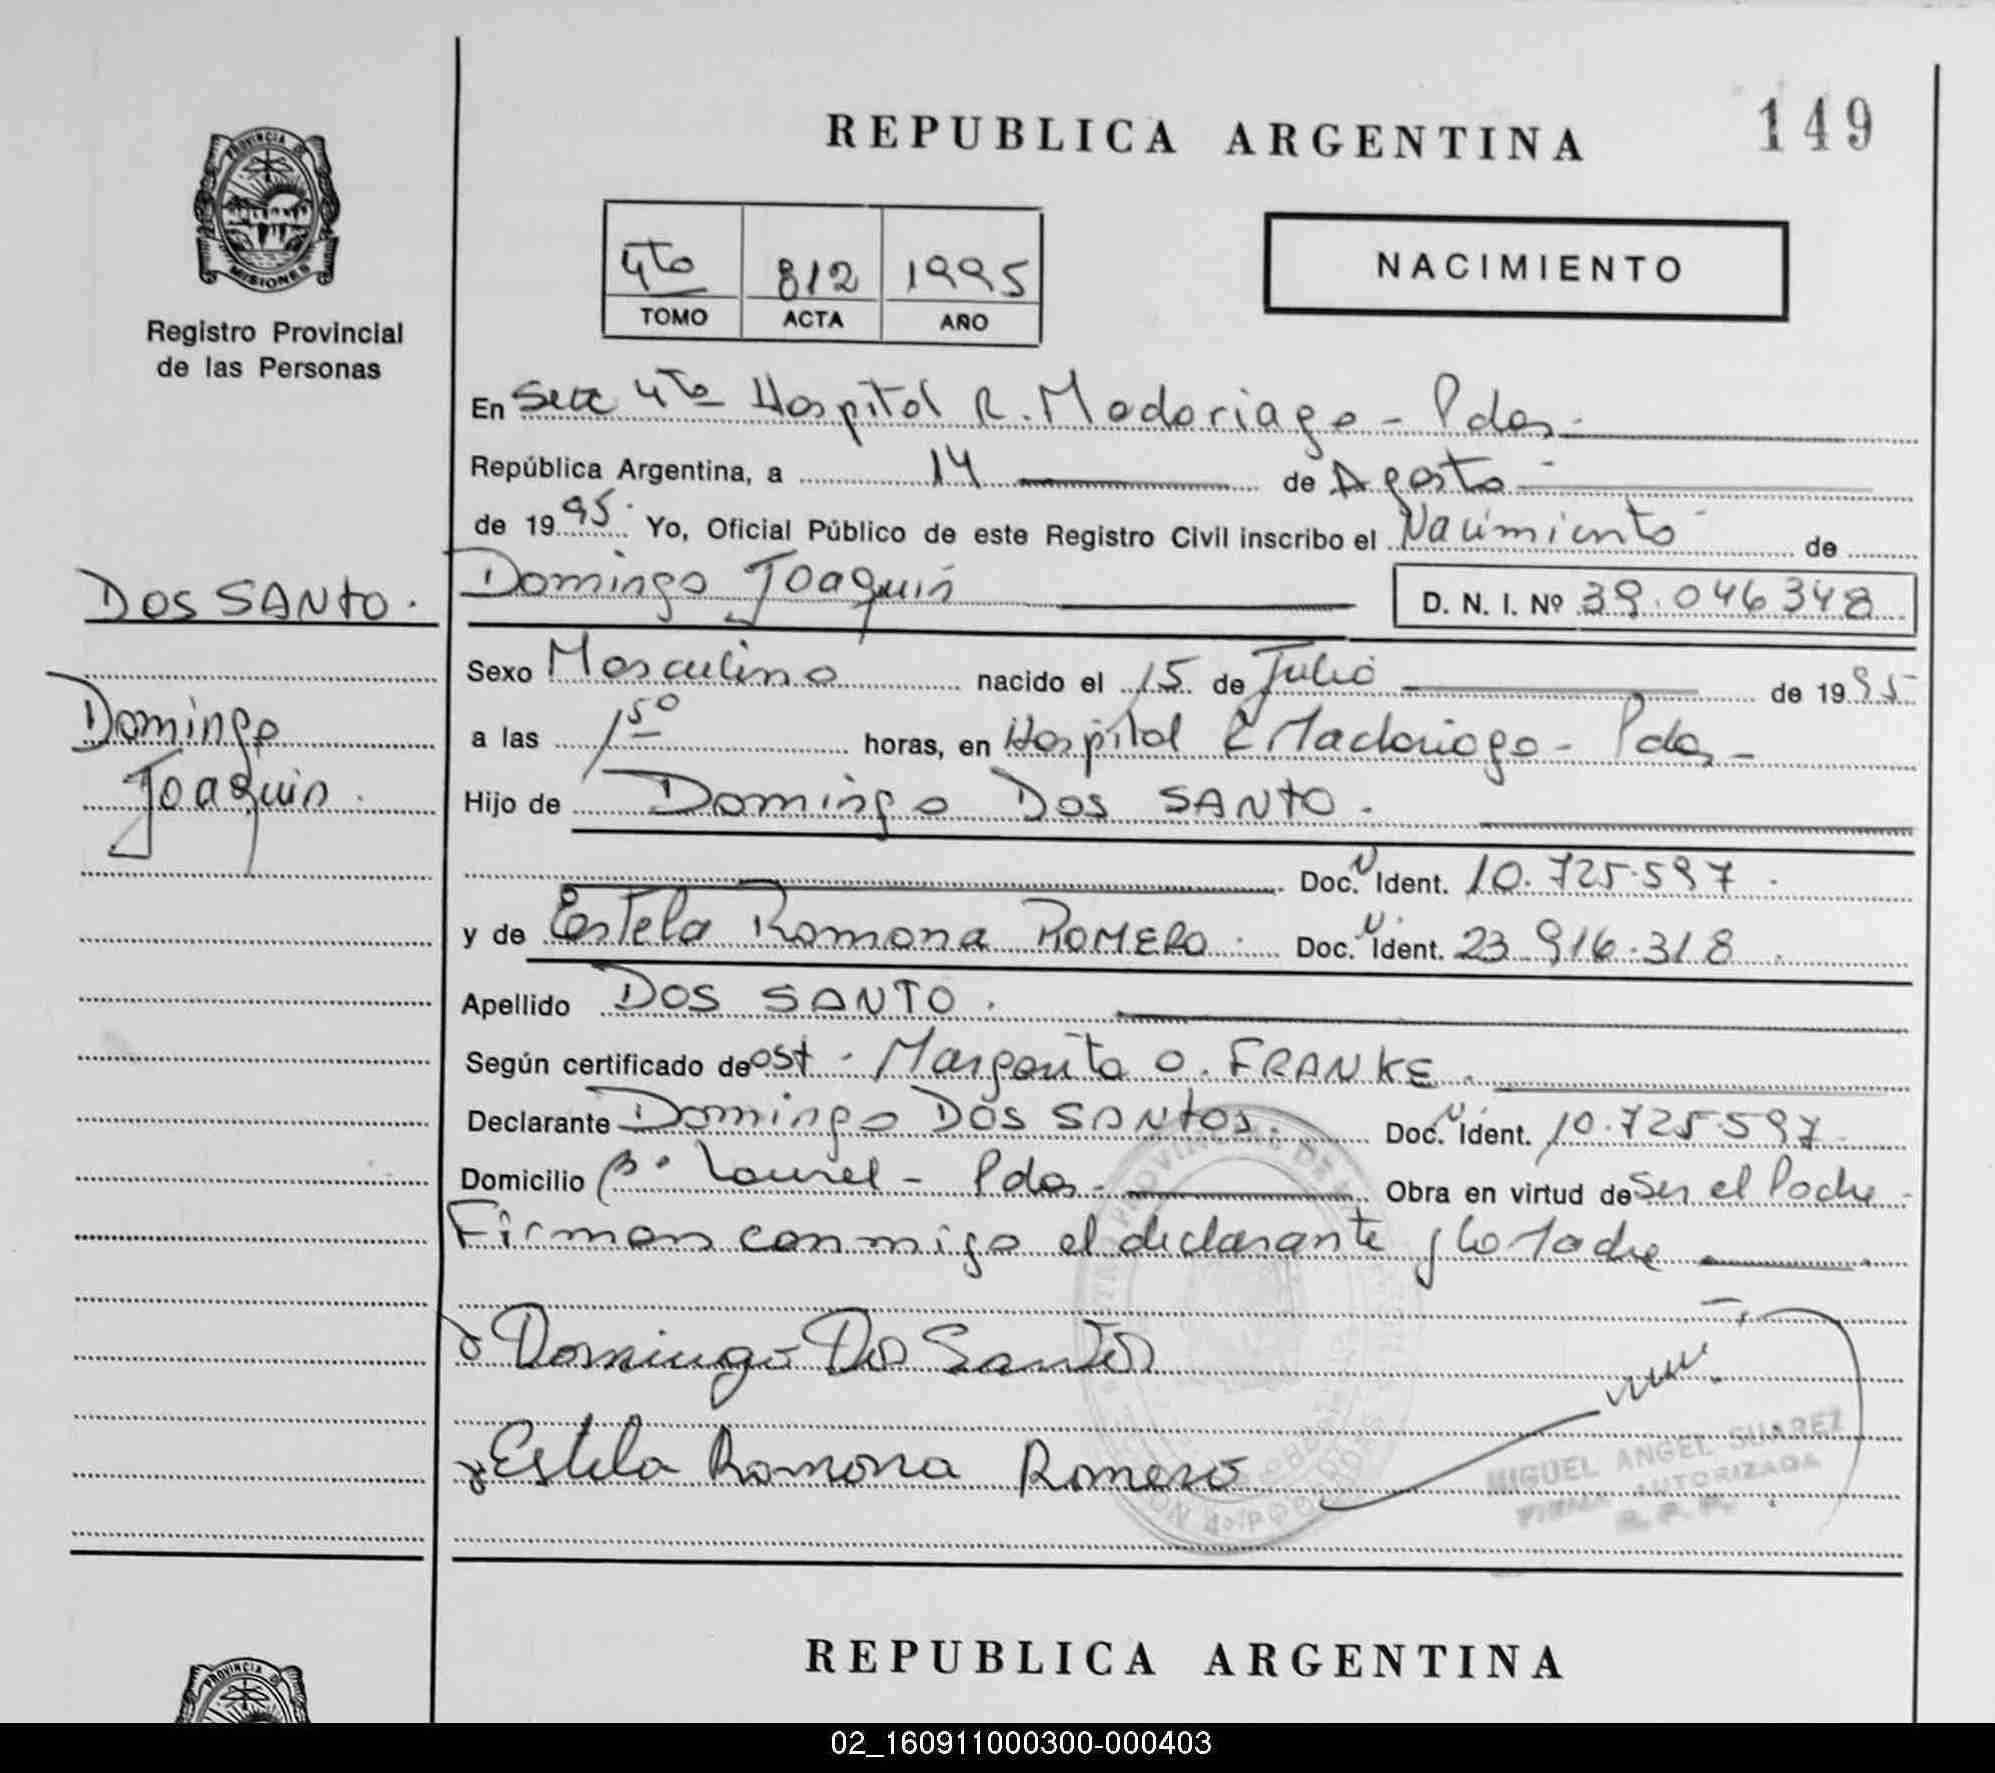 REPUBLICA ARGENTINA
149
PROVINCIA DE
MISIONES
Registro Provincial
de las Personas
4to 812 1995
TOMO ACTA AÑO
NACIMIENTO
En Secc 4To Hospital R. Madariaga - Pdas.
República Argentina, a 14 de Agosto
de 1995. Yo, Oficial Público de este Registro Civil inscribo el Nacimiento de
Domingo Joaquin D. N. I. Nº 39.046348
DOS SANTO.
Domingo
Joaquin.
Sexo Masculino nacido el 15 de Julio de 1995
a las 1 50 horas, en Hospital R Madariaga - Pdas -
Hijo de Domingo Dos SANTO.
Doc. N Ident. 10.725.597.
y de Estela Ramona ROMERO. Doc. N Ident. 23.916.318
Apellido DOS SANTO.
Según certificado de ost. Margarita O. FRANKE.
Declarante Domingo DOS SANTOS. Doc. N Ident. 10.725.597
Domicilio Bº Laurel - Pdas. Obra en virtud de Ser el Padre -
Firman conmigo el declarante y la Madre
Domingo Dos Santos
Estela Ramona Romero
MIGUEL ANGEL SUAREZ
FIRMA AUTORIZADA
R. P. P.
REPUBLICA ARGENTINA
PROVINCIA D
02_160911000300-000403